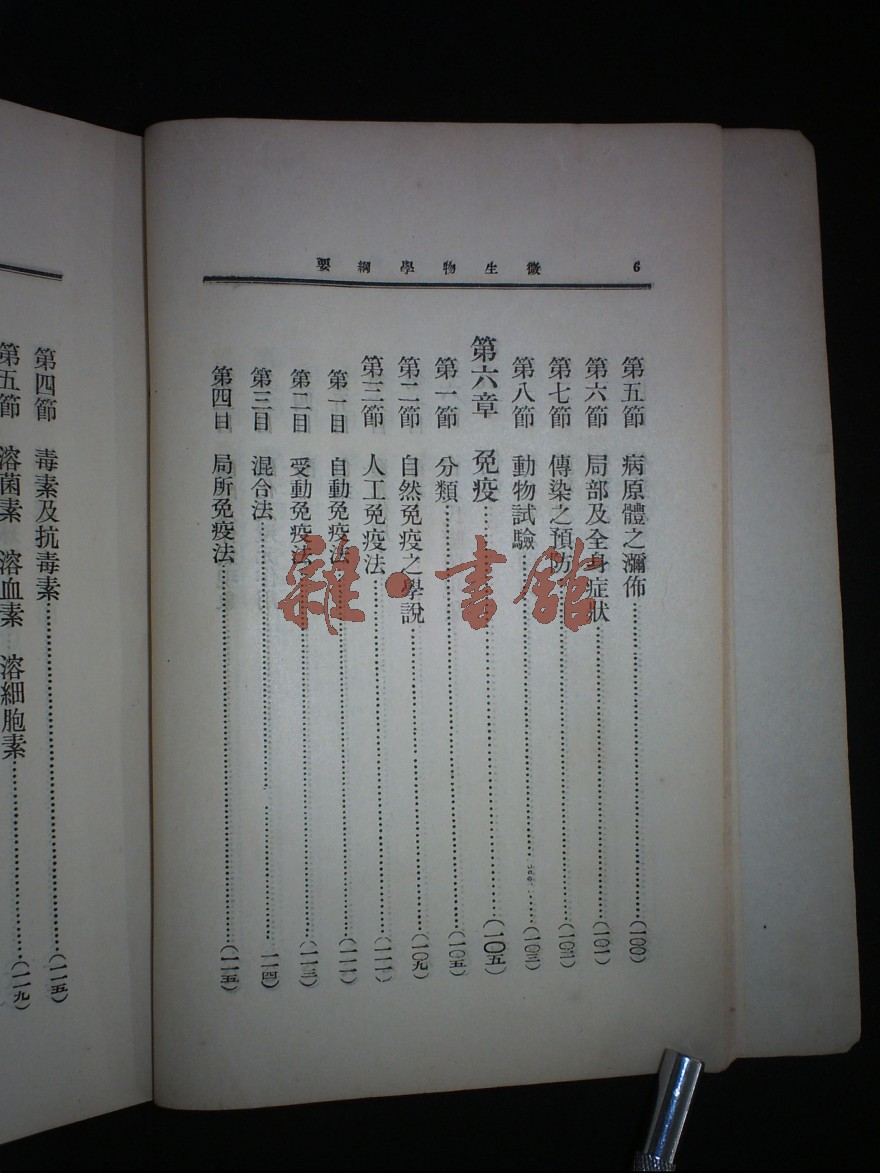 6 微生物學綱要
第五節 病原體之瀰佈……(一〇〇)
第六節 局部及全身症狀……(一〇一)
第七節 傳染之預防……(一〇二)
第八節 動物試驗……(一〇三)
第六章 免疫……(一〇五)
第一節 分類……(一〇五)
第二節 自然免疫之學說……(一〇九)
第三節 人工免疫法……(一一一)
第一目 自動免疫法……(一一一)
第二目 受動免疫法……(一一三)
第三目 混合法……一一四
第四目 局所免疫法……(一一五)
第四節 毒素及抗毒素……(一一五)
第五節 溶菌素 溶血素 溶細胞素……(一一九)
雜·書館